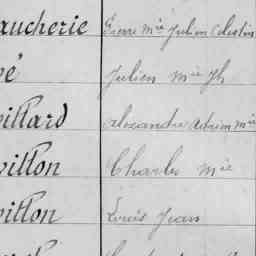 aucherie Pierre Mie Julien Célestin
é Julien Mie Jh
illard Alexandre Adrien Mie
villon Charles Mie
villon Louis Jean